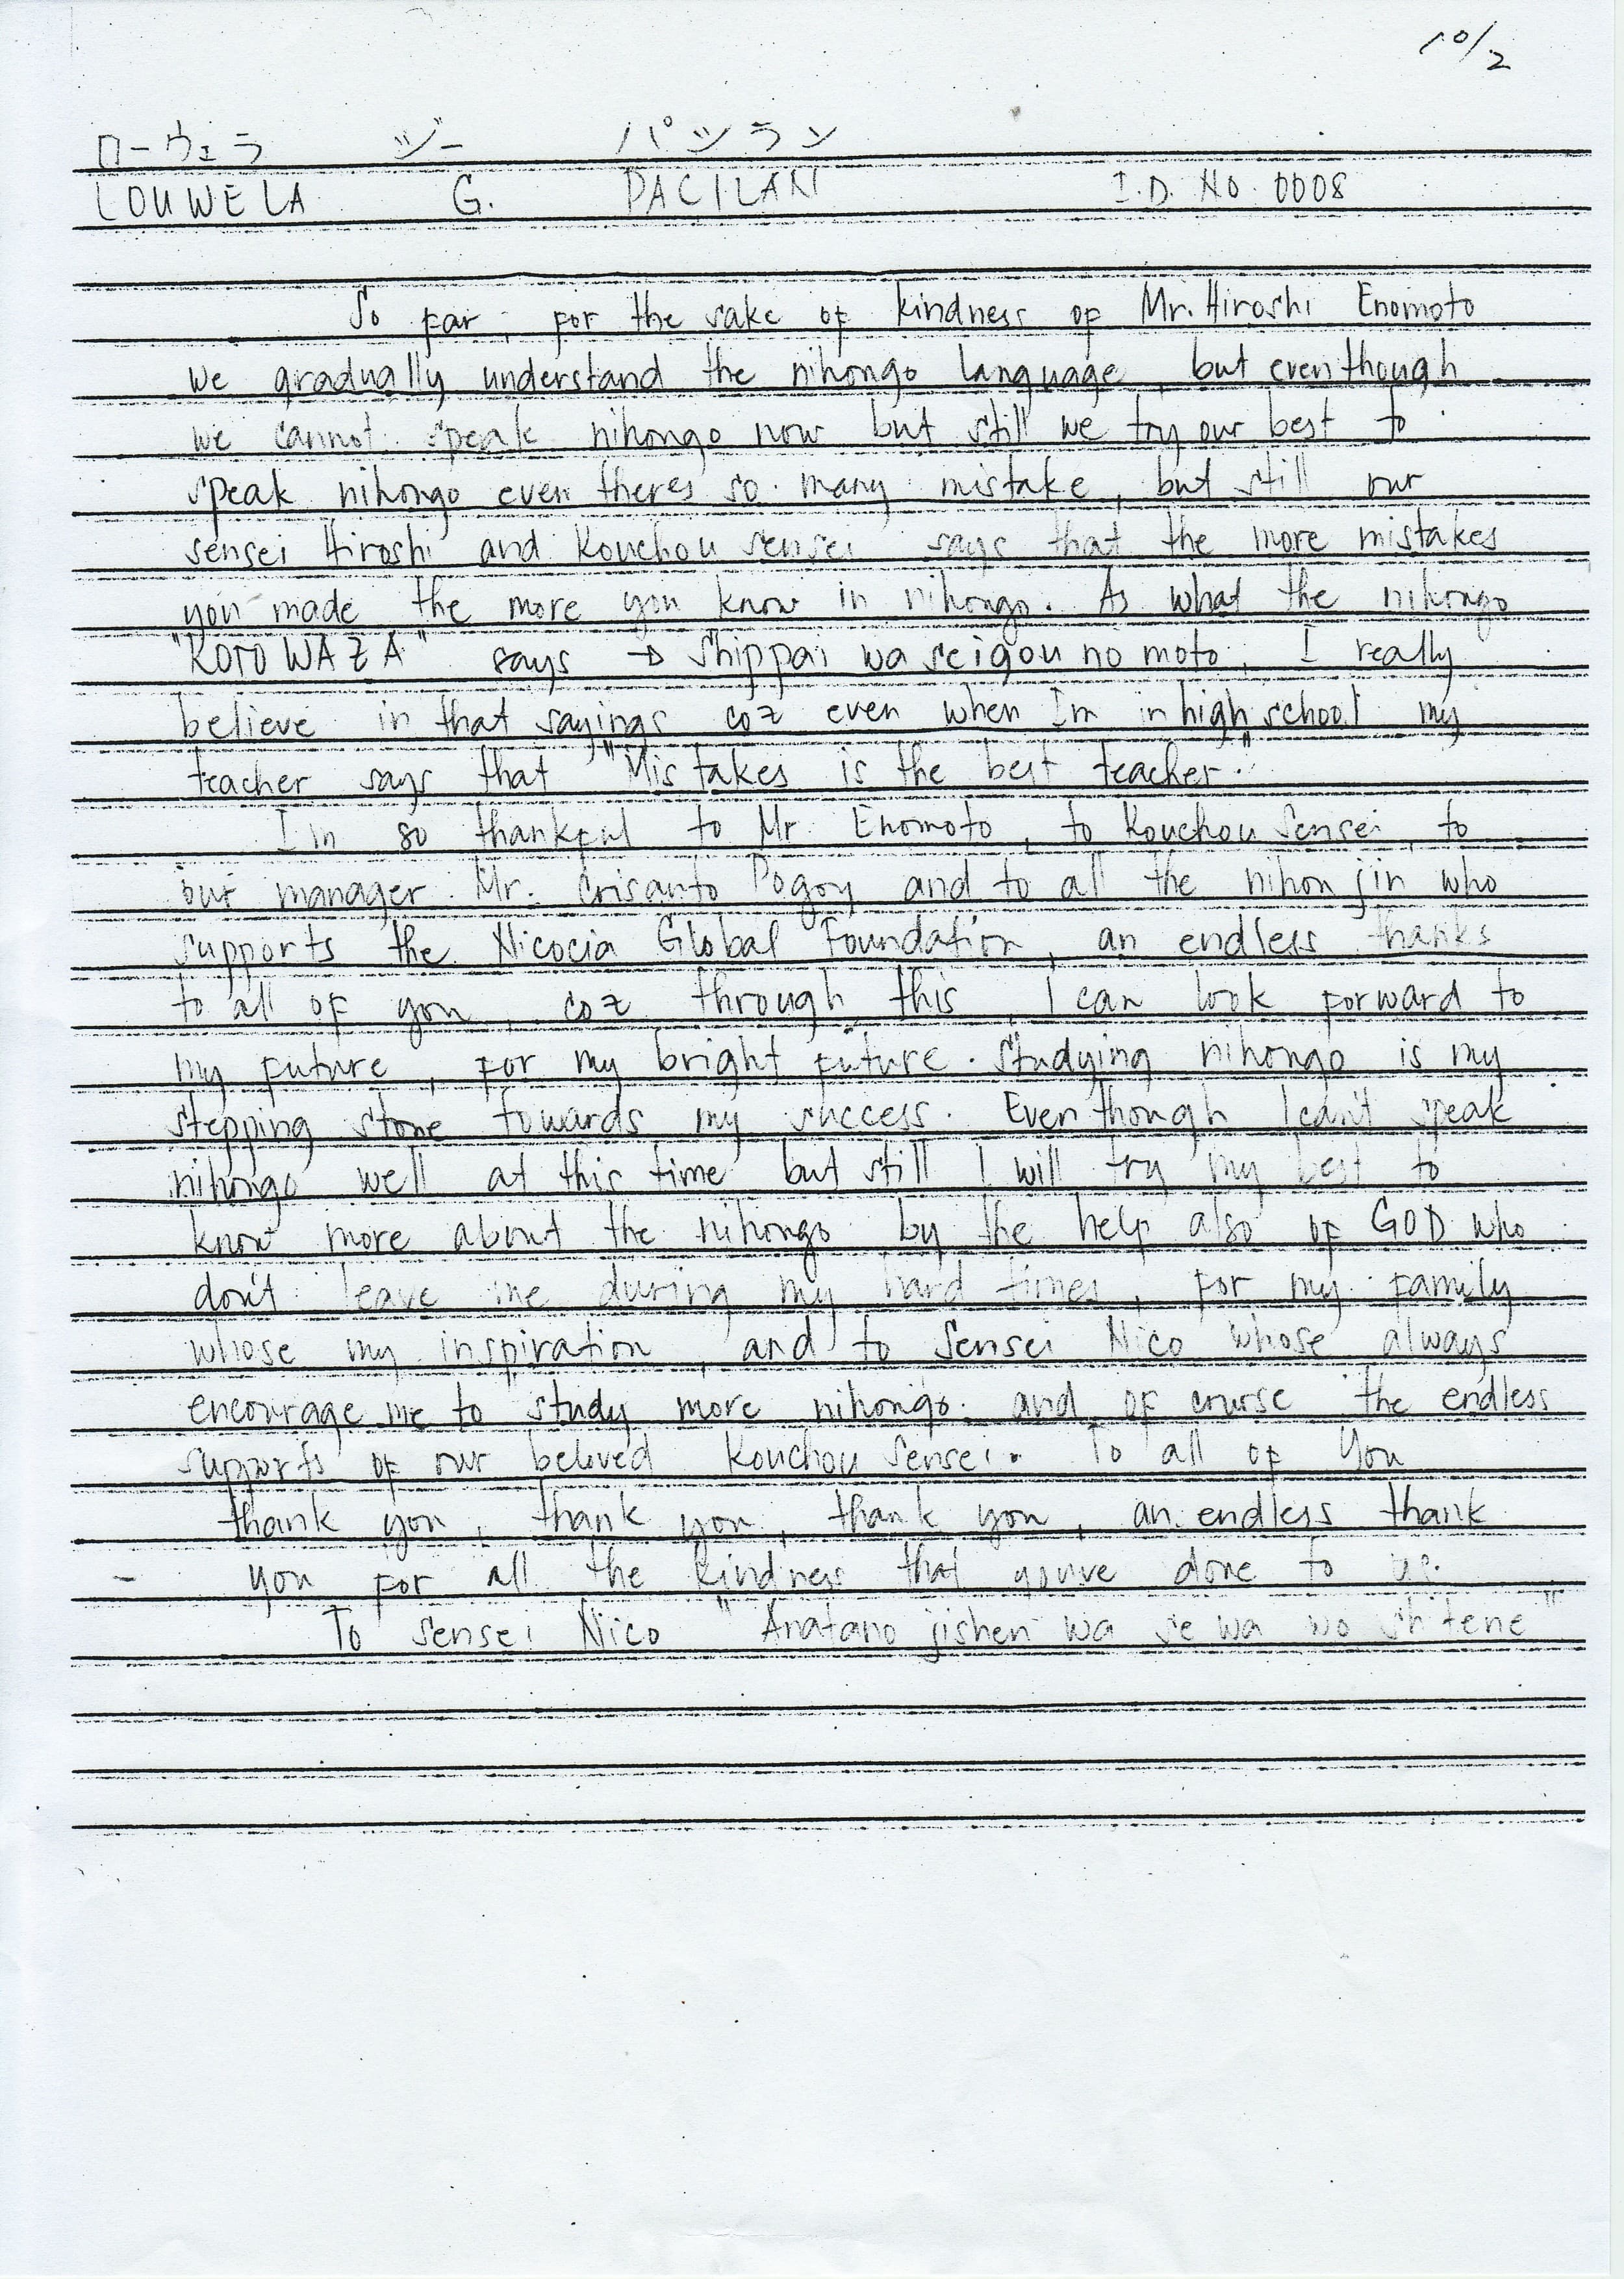 10/2
ローウェラ ジー パシラン
LOUWELA G. PACILAN I.D. No. 0008
So far, for the sake of kindness of Mr. Hiroshi Enomoto
we gradually understand the nihongo language, but eventhough
we cannot speak nihongo now but still we try our best to
speak nihongo even theres so many mistake, but still our
sensei Hiroshi and Kouchou sensei says that the more mistakes
you made the more you know in nihongo. As what the nihongo
"KOTOWAZA" says → shippai wa seigou no moto, I really
believe in that sayings coz even when Im in high school my
teacher says that "Mistakes is the best teacher."
Im so thankful to Mr. Enomoto, to Kouchou Sensei, to
our manager Mr. Crisanto Pogoy and to all the nihon jin who
supports the Nicocia Global Foundation, an endless thanks
to all of you, coz through this, I can look forward to
my future, for my bright future. Studying nihongo is my
stepping stone towards my success. Even though I can't speak
nihongo well at this time but still I will try my best to
know more about the nihongo by the help also of GOD who
don't leave me during my hard times, for my family
whose my inspiration, and to Sensei Nico whose always
encourage me to study more nihongo. and of course the endless
supports of our beloved Kouchou Sensei. To all of You
thank you, thank you, thank you, an endless thank
- you for all the kindness that youve done to us.
To sensei Nico "Anatano jishen wa se wa wo shitene"